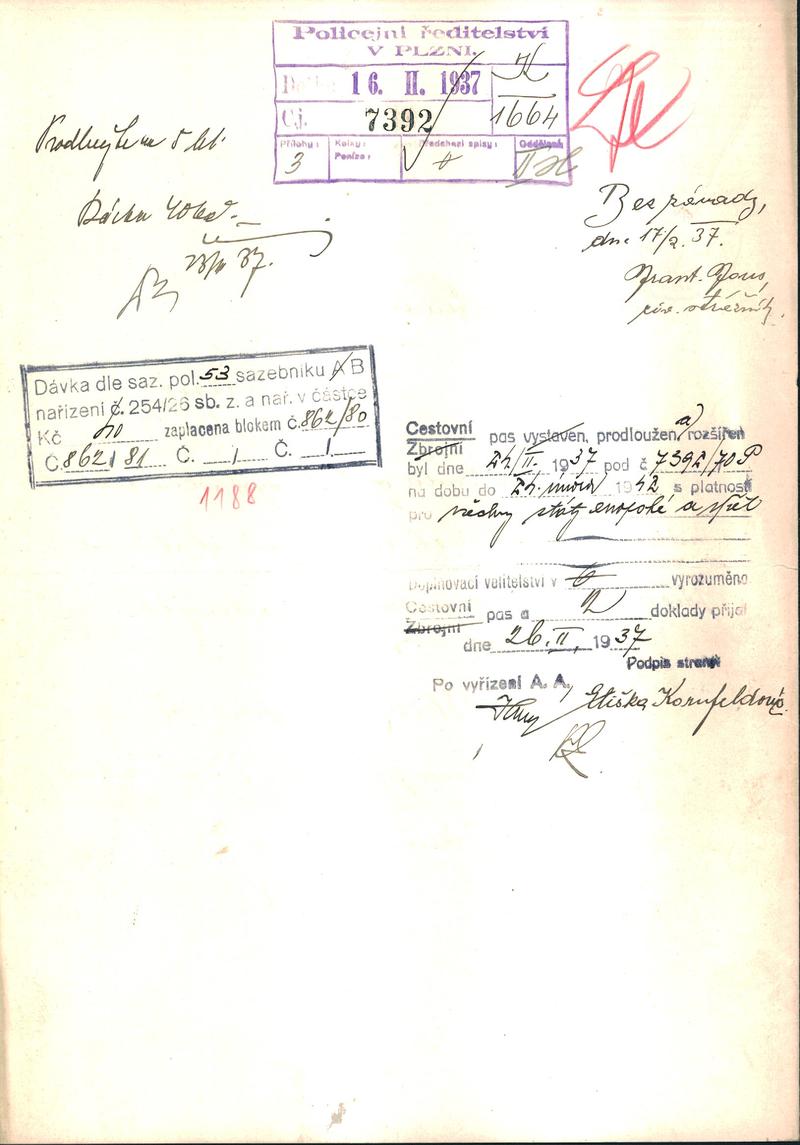 Policejní ředitelství
V PLZNI.
Došlo: 16. II. 1937
K
1664
Čj. 7392
Přílohy: 3
Kolky:
Peníze:
Předchozí spisy:
Oddělení
Prodlužte na 5 let.
Dávka 40 Kč.
23/II 37.
Bez závady,
dne 17/2. 37.
Frant.
Dávka dle saz. pol. 53 sazebníku A B
nařízení č. 254/26 sb. z. a nař. v částce
Kč zaplacena blokem č. 862/80
Č. 862/81 Č. / Č. /
1188
Cestovní
Zbrojní
pas vystaven, prodloužen, a) rozšířen
byl dne 24/II. 1937 pod č 7392/70P
na dobu do 24. února 1942 s platností
pro všechny státy evropské a zpět
Doplňovací velitelství v vyrozuměno
Cestovní
Zbrojní
pas a 2 doklady přijal
dne 26. II. 1937
Podpis strany
Po vyřízení A. A.
Eliška Kornfeldová